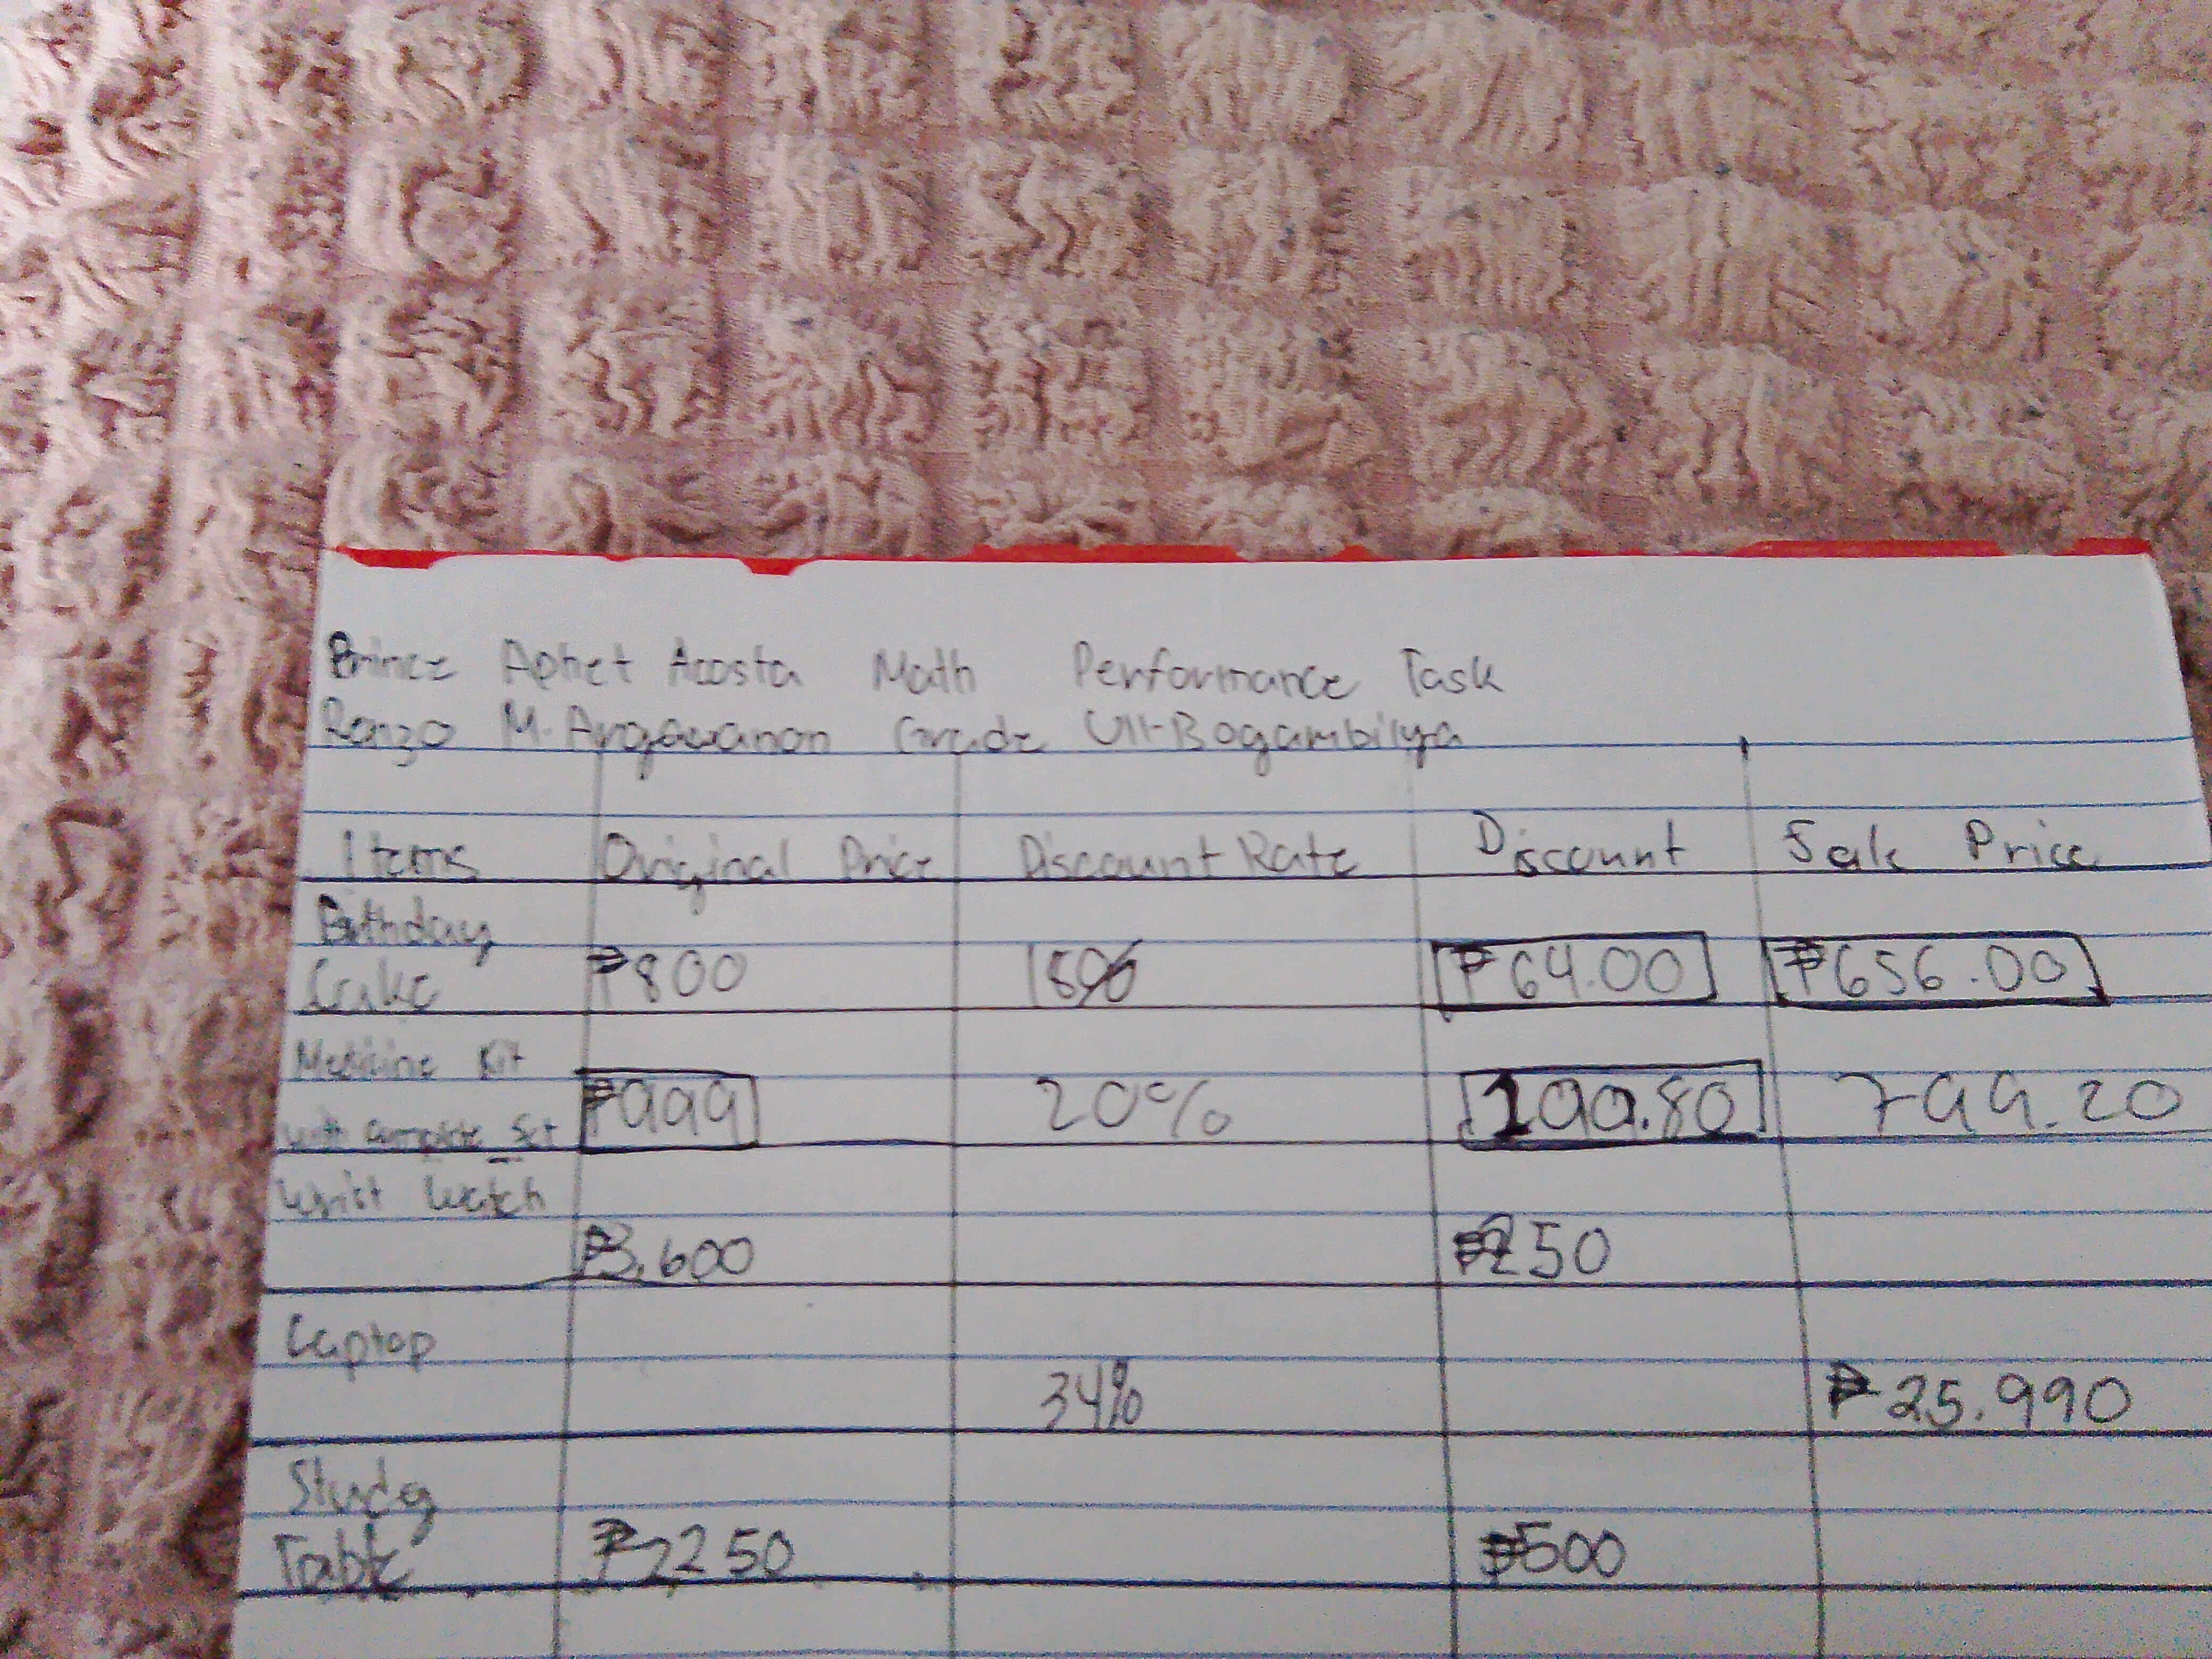 Prince Aphet Acosta Math Performance Task
Renzo M. Argawanon Grade VII-Bogambilya
Items Original Price Discount Rate Discount Sale Price
Birthday
Cake ₱800 18% ₱64.00 ₱656.00
Medicine Kit
with Complete Set ₱999 20% 199.80 799.20
Wrist Watch
₱3,600 ₱250
Laptop
34% ₱25.990
Study
Table ₱2250 ₱500